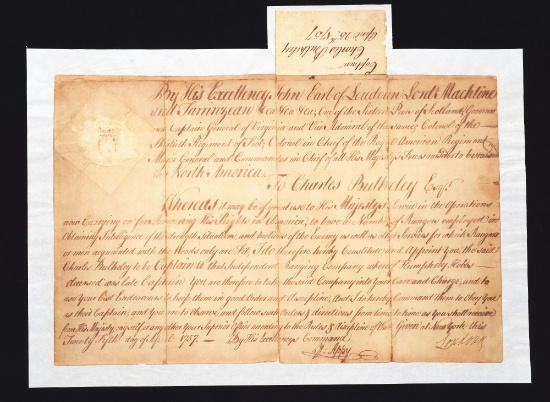 Captain
Charles Bulkeley
April 25th 1757
By His Excellency John Earl of Loudoun Lord Machline
and Tarrinzean &ca &ca &ca, One of the Sixteen Peers of Scotland, Governor
and Captain General of Virginia and Vice Admiral of the same; Colonel of the
Thirtieth Regiment of Foot, Colonel in Chief of the Royal American Regiment
Major General and Commander in Chief of all His Majesty's Forces raised or to be raised in
North America.
To Charles Bulkeley Esqr.
Whereas it may be of great use to His Majesty's Service in the Operations
now Carrying on for recovering His Rights in America, to have a Number of Rangers employ'd in
Obtaining Intelligence of the Strength, Situation, and motions of the Enemy as well as other Services for which Rangers
or men acquainted with the Woods only are Fit, I do therefore hereby Constitute and Appoint You, the said
Charles Bulkeley to be Captain to that Independent Ranging Company whereof Humphrey Hobbs
deceased was late Captain. You are therefore to take the said Company into Your Care and Charge, and to
use Your Best Endeavours to keep them in good Order and Discipline, And I do hereby Command them to Obey You
as their Captain, and You are to Observe, and follow such Orders & directions from time to time as You shall receive
from His Majesty, myself or any other Your Superior Officer according to the Rules & Discipline of War. Given at New York this
Twenty Fifth day of April 1757.
By His Excellency's Command
J: Appy
Loudoun